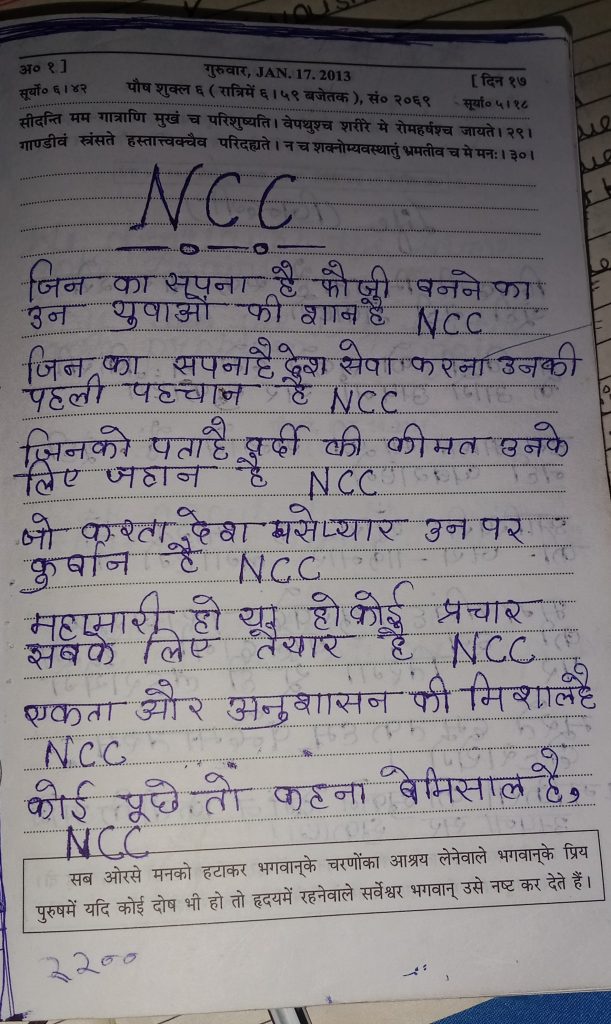 अ० १ ]
गुरुवार, JAN. 17. 2013
[ दिन १७
सूर्यो० ६।४२
पौष शुक्ल ६ ( रात्रिमें ६।५९ बजेतक ), सं० २०६९
सूर्या० ५।१८
सीदन्ति मम गात्राणि मुखं च परिशुष्यति। वेपथुश्च शरीरे मे रोमहर्षश्च जायते।२९।
गाण्डीवं स्रंसते हस्तात्त्वक्चैव परिदह्यते। न च शक्नोम्यवस्थातुं भ्रमतीव च मे मनः।३०।
NCC
जिन का सपना है फौजी बनने का
उन युवाओं की शान है NCC
जिन का सपना है देश सेवा करना उनकी
पहली पहचान है NCC
जिनको पता है वर्दी की कीमत उनके
लिए जहान है NCC
जो करता देश से प्यार उन पर
कुर्बान है NCC
महामारी हो या हो कोई प्रचार
सबके लिए तैयार है NCC
एकता और अनुशासन की मिशाल है
NCC
कोई पूछे तो कहना बेमिसाल है,
NCC
सब ओरसे मनको हटाकर भगवान्‌के चरणोंका आश्रय लेनेवाले भगवान्‌के प्रिय
पुरुषमें यदि कोई दोष भी हो तो हृदयमें रहनेवाले सर्वेश्वर भगवान् उसे नष्ट कर देते हैं।
२२००